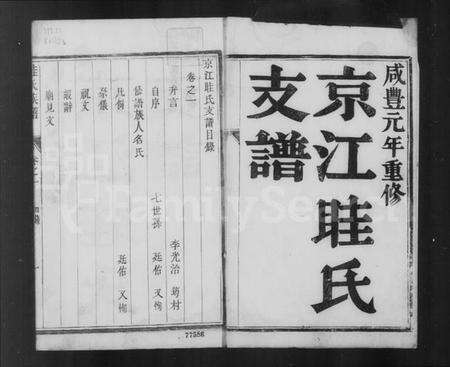 咸豐元年重修
京江眭氏
支譜
京江眭氏支譜目錄
卷之一
弁言 李光治 筠村
自序 七世孫 廷佑 又衡
修譜族人名氏
凡例 廷佑 又衡
祭儀
祝文
嘏辭
廟見文
77586
FamilySearch